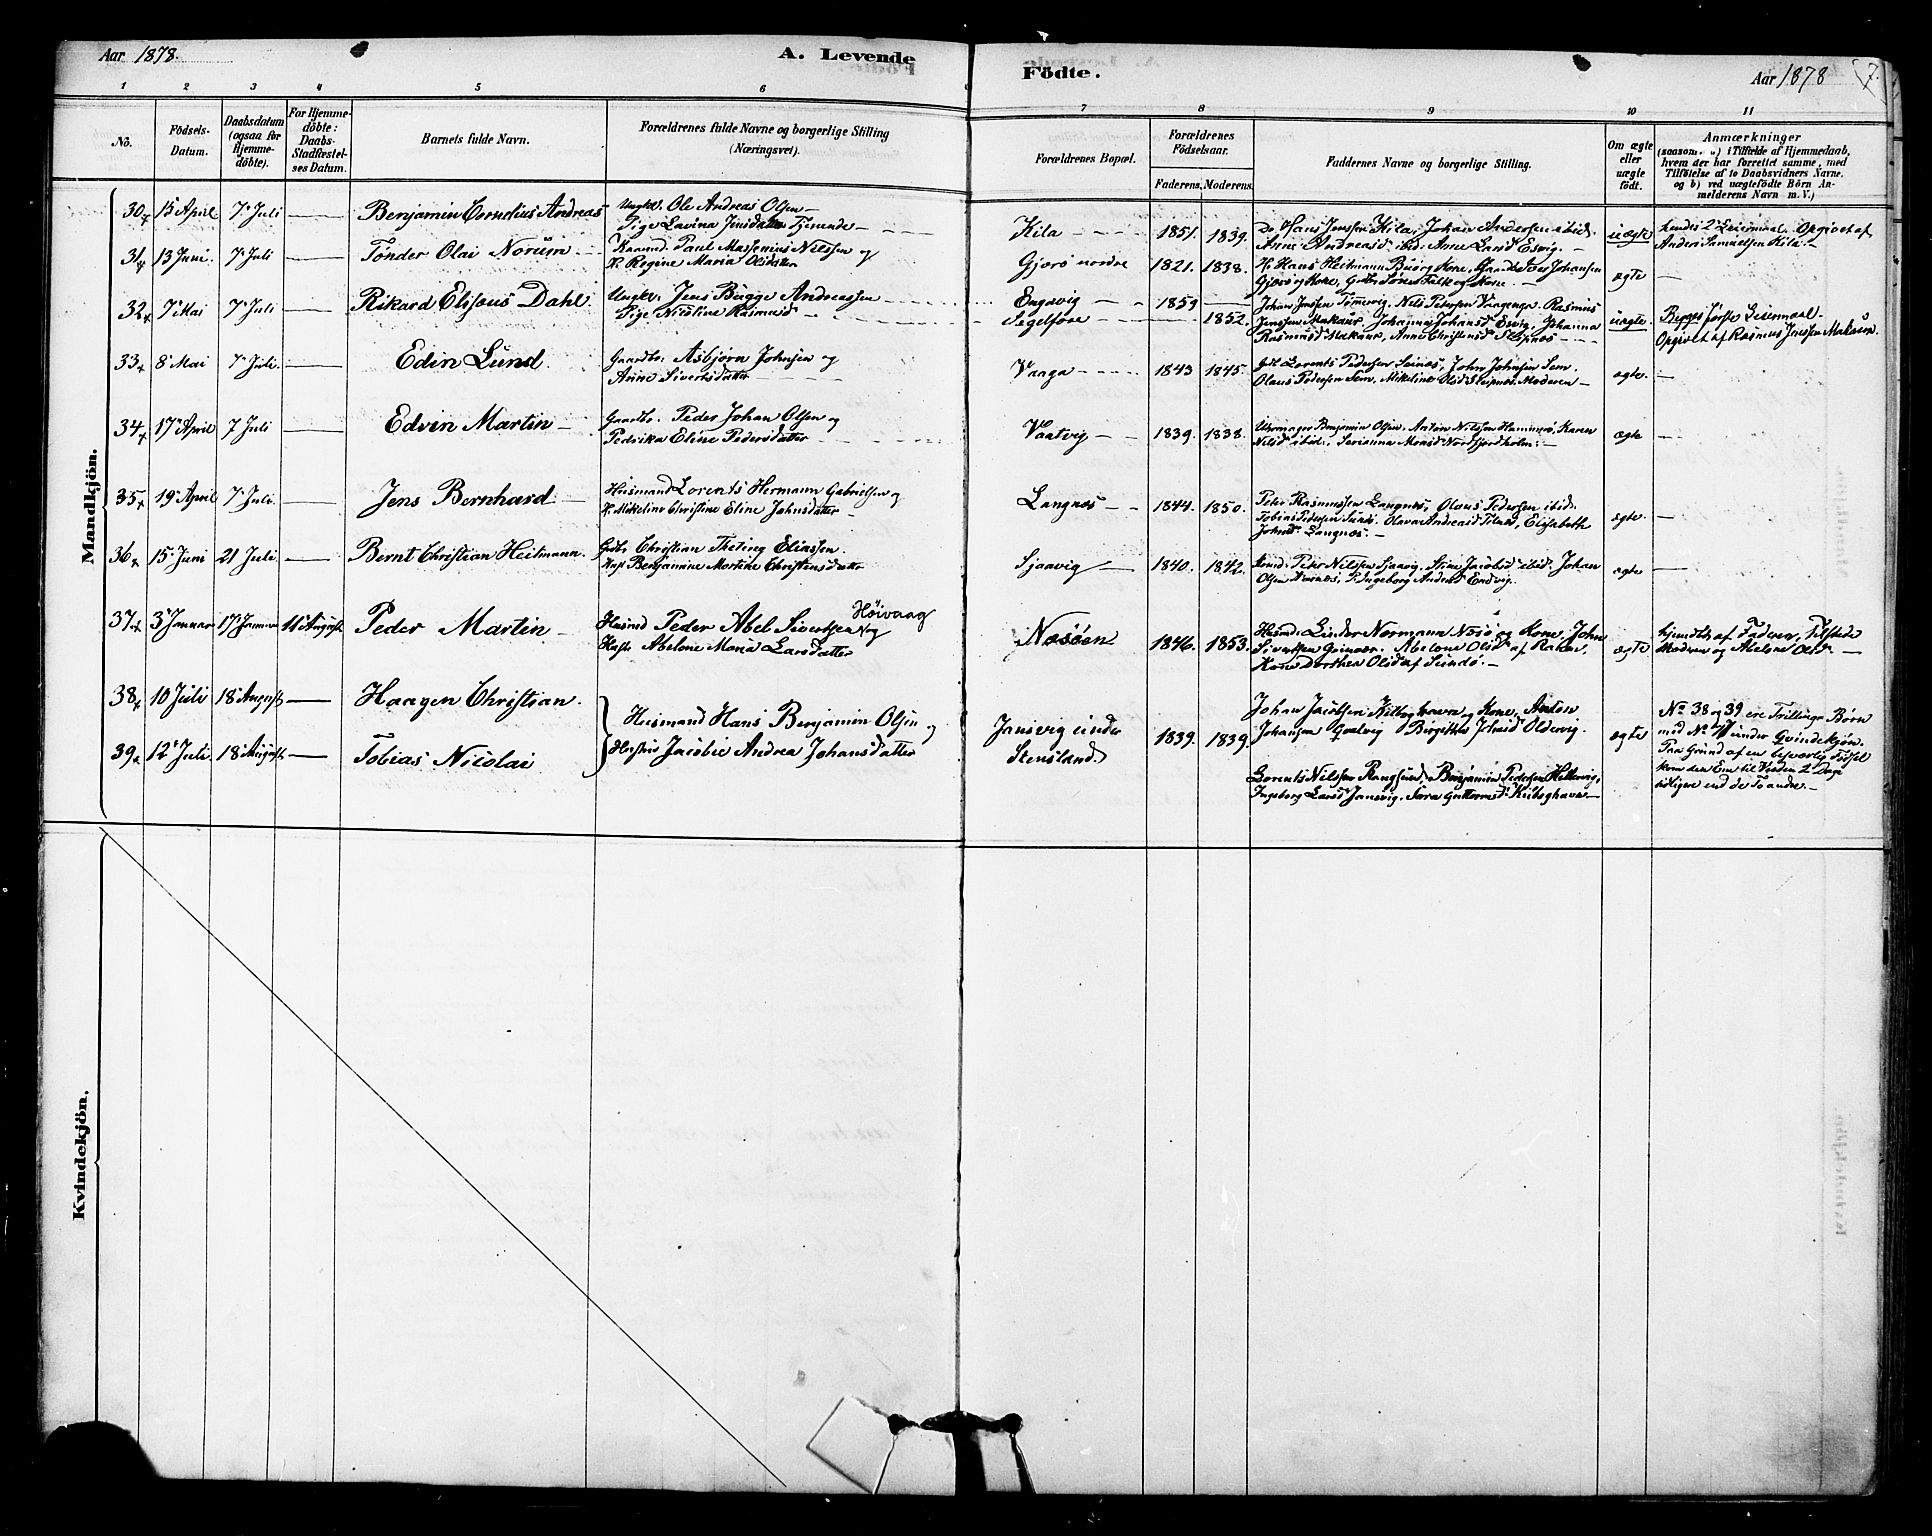 Aar 1878.
A. Levende
Födte.
Aar 1878
7.
1 2 3 4 5 6 7 8 9 10 11
No.
Födsels-
Datum.
Daabsdatum
(ogsaa for
Hjemme-
döbte).
For Hjemme-
döbte:
Daabs-
Stadfæstel-
ses Datum.
Barnets fulde Navn.
Forældrenes fulde Navne og borgerlige Stilling
(Næringsvei).
Forældrenes Bopæl.
Forældrenes
Födselsaar.
Faderens. Moderens.
Faddernes Navne og borgerlige Stilling.
Om ægte
eller
uægte
födt.
Anmærkninger
(saasom a) i Tilfælde af Hjemmedaab,
hvem der har forrettet samme, med
Tilföielse af to Daabsvidners Navne.
og b) ved uægtefödte Börn An-
melderens Navn m. V.)
Mandkjön.
30 15 April 7 Juli — Benjamin Cornelius Andreas Ungkr. Ole Andreas Olsen —
Pige Lavina Jensdatter Tjenende —
Kila 1851. 1839. Hans Jenssen Kila, Johan Andersen ibid.
Anne Andreasd ibid. Anne Larsd Esvig. —
uægte hendes 2 Leiermaal. Opgivet af
Anders Samuelsen Kila —
31 13 Juni 7 Juli — Tønder Olai Norum Paul Massenius Nilssen og
H. Regine Maria Olsdatter
Gjerø nordre 1821. 1838. H. Hans Heitmann Buörg Kone, Iver Johansen
Gjerø og Kone, Søren Falk og Kone. —
ægte —
32 7 Mai 7 Juli — Rikard Elisæus Dahl Ungkr. Jens Bugge Andreassen
Pige Nicoline Rasmusd
Engavig 1859 —
Segelfore 1852.
Johan Jensen Tømervig, Nils Petersen Vaagenga. Rasmus
Jenssen Makaur, Johanna Johansd Esvig, Johanna
Rasmusd Makaur, Anne Christensd
uægte. Begges første Leiermaal —
Opgivet af Rasmus Jenssen Makaur.
33 8 Mai 7 Juli — Edin Lund. Gaardbr. Asbjørn Johnsen og
Anne Sivertsdatter
Vaaga 1843 1845. Lorents Pedersen Seines, John Johnsen Sem.
Olaus Pedersen Sem, Mikeline Moderen —
ægte. —
34 17 April 7 Juli — Edvin Martin — Gaardbr. Peder Johan Olsen og
Pedrika Eline Pedersdatter
Vaatvig — 1839. 1838. Uhrmager Benjamin Olsen. Anton Nilssen Hammerø, Karen
Nilsd ibid. Serianna Monsd Nordfjordholm. —
ægte —
35 19 April 7 Juli — Jens Bernhard — Husmand Lorents Hermann Gabrielsen og
H. Mikeline Christine Eline Johnsdatter —
Langnæs 1844. 1850. Peter Rasmussen Langnæs, Olaus Pedersen ibid.
Tobias Pedersen Sunds. Olava Andreasd Elisabeth
Johnsd. Langnæs. —
ægte. —
36 15 Juni 21 Juli — Bernt Christian Heitmann. Gdbr. Christian Theting Eliassen.
Hust Benjamine Martine Christensdatter
Sjaavig — 1840. 1842. Peter Nilssen Sjaavig. Stine Jacobsd ibid. Johan
Olsen P. Ingeborg Andersd Endvig.
ægte —
37 3 Januar 17 Januar 11 August Peder Martin — Husmd Peder Abel Sivertsen Høivaag og
Hustr Abelone Maria Larsdatter
Næsøen 1846. 1853. Husmd. Linder Normann Næsø og Kone, John
Sivertsen Grinær. Abelone Olsd af
Dorthea Olsd af Sundø. —
ægte hjemdbt af Faderen, Tilstede
Modren og Abelone Olsd —
38 10 Juli 18 August — Haagen Christian.
39 12 Juli. 18 August — Tobias Nicolai
Husmand Hans Benjamin Olsen og
Hustru Jacobie Andrea Johansdatter
Jansvig under
Stensland.
1839. 1839. Johan Jacobsen Kilboghavn og Kone, Anton
Johansen Qvalvig Birgitte Johnsd Oldervig.
Lorents Nilssen Rangsund, Benjamin Pedersen Hellervig,
Ingeborg Larsd Jansvig. Sara Guttormsd. Kilboghavn —
ægte No 38 og 39 ere Trillinge Børn
med No under Qvindekjön.
Paa Grund af en besværlig Fødsel
kom den Ene til Verden 2 Dage
tidligere end de To andre. —
Kvindekjön.